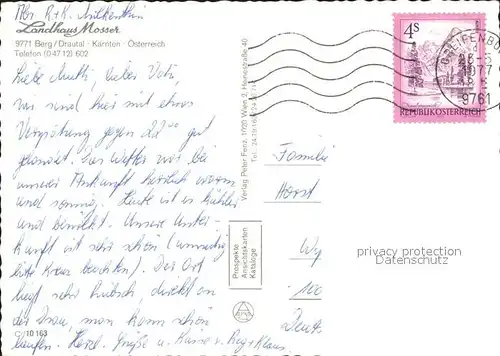 Abs. R. + K.
Landhaus Mosser
9771 Berg/Drautal · Kärnten · Österreich
Telefon (0 47 12) 602
Liebe Mutti, lieber Vati,
wir sind hier mit etwas
Verspätung gegen 22⁰⁰ gut
gelandet. Das Wetter war bei
unserer Ankunft herrlich warm
und sonnig. Heute ist es kühler
und bewölkt. Unsere Unter-
kunft ist sehr schön (umseitig
bitte Kreuz beachten). Der Ort
liegt sehr hübsch, direkt an
der Drau, man kann schön
laufen. Herzl. Grüße u. Küsse v. Reg + Klaus
C 10 163
Verlag Peter Fenz, 1020 Wien 2, Heinestraße 40
Prospekte
Ansichtskarten
Kataloge
4S
REPUBLIK ÖSTERREICH
GREIFENBU
1977
9761
Familie
Horst
Wy
100
Deut
privacy protection
Datenschutz